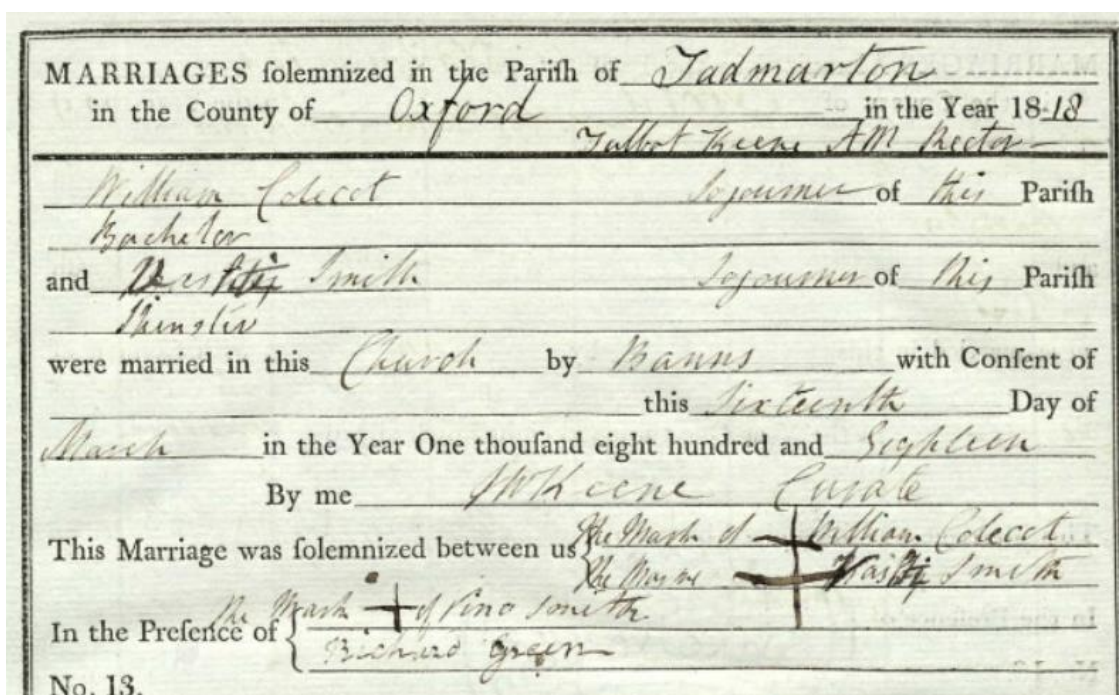 MARRIAGES ſolemnized in the Pariſh of Tadmarton
in the County of Oxford in the Year 18-18
Talbot Keene AM Rector -
William Colecot Sojourner of this Pariſh
Bachelor
and Smith Sojourner of this Pariſh
Spinster
were married in this Church by Banns with Conſent of
this Sixteenth Day of
March in the Year One thouſand eight hundred and Eighteen
By me Keene Curate
This Marriage was ſolemnized between us { the Mark of + William Colecot
Smith
In the Preſence of { the Mark + of Smith
Richard Green
No. 13.